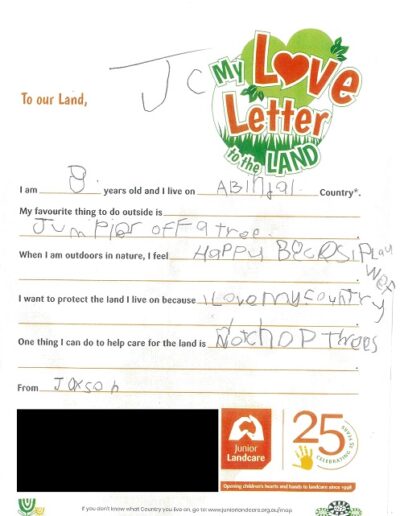 Jc
My Love
Letter
to the LAND
To our Land,
I am 8. years old and I live on ABInjal Country*.
My favourite thing to do outside is
Jumpier off a tree.
When I am outdoors in nature, I feel HAPPY BecosIPlay
wef
I want to protect the land I live on because iLovemycountry
One thing I can do to help care for the land is NotchOP Threes
From Jaxson
Junior
Landcare
25
CELEBRATING 25 YEARS
Opening children's hearts and hands to landcare since 1998
If you don't know what Country you live on, go to: www.juniorlandcare.org.au/map